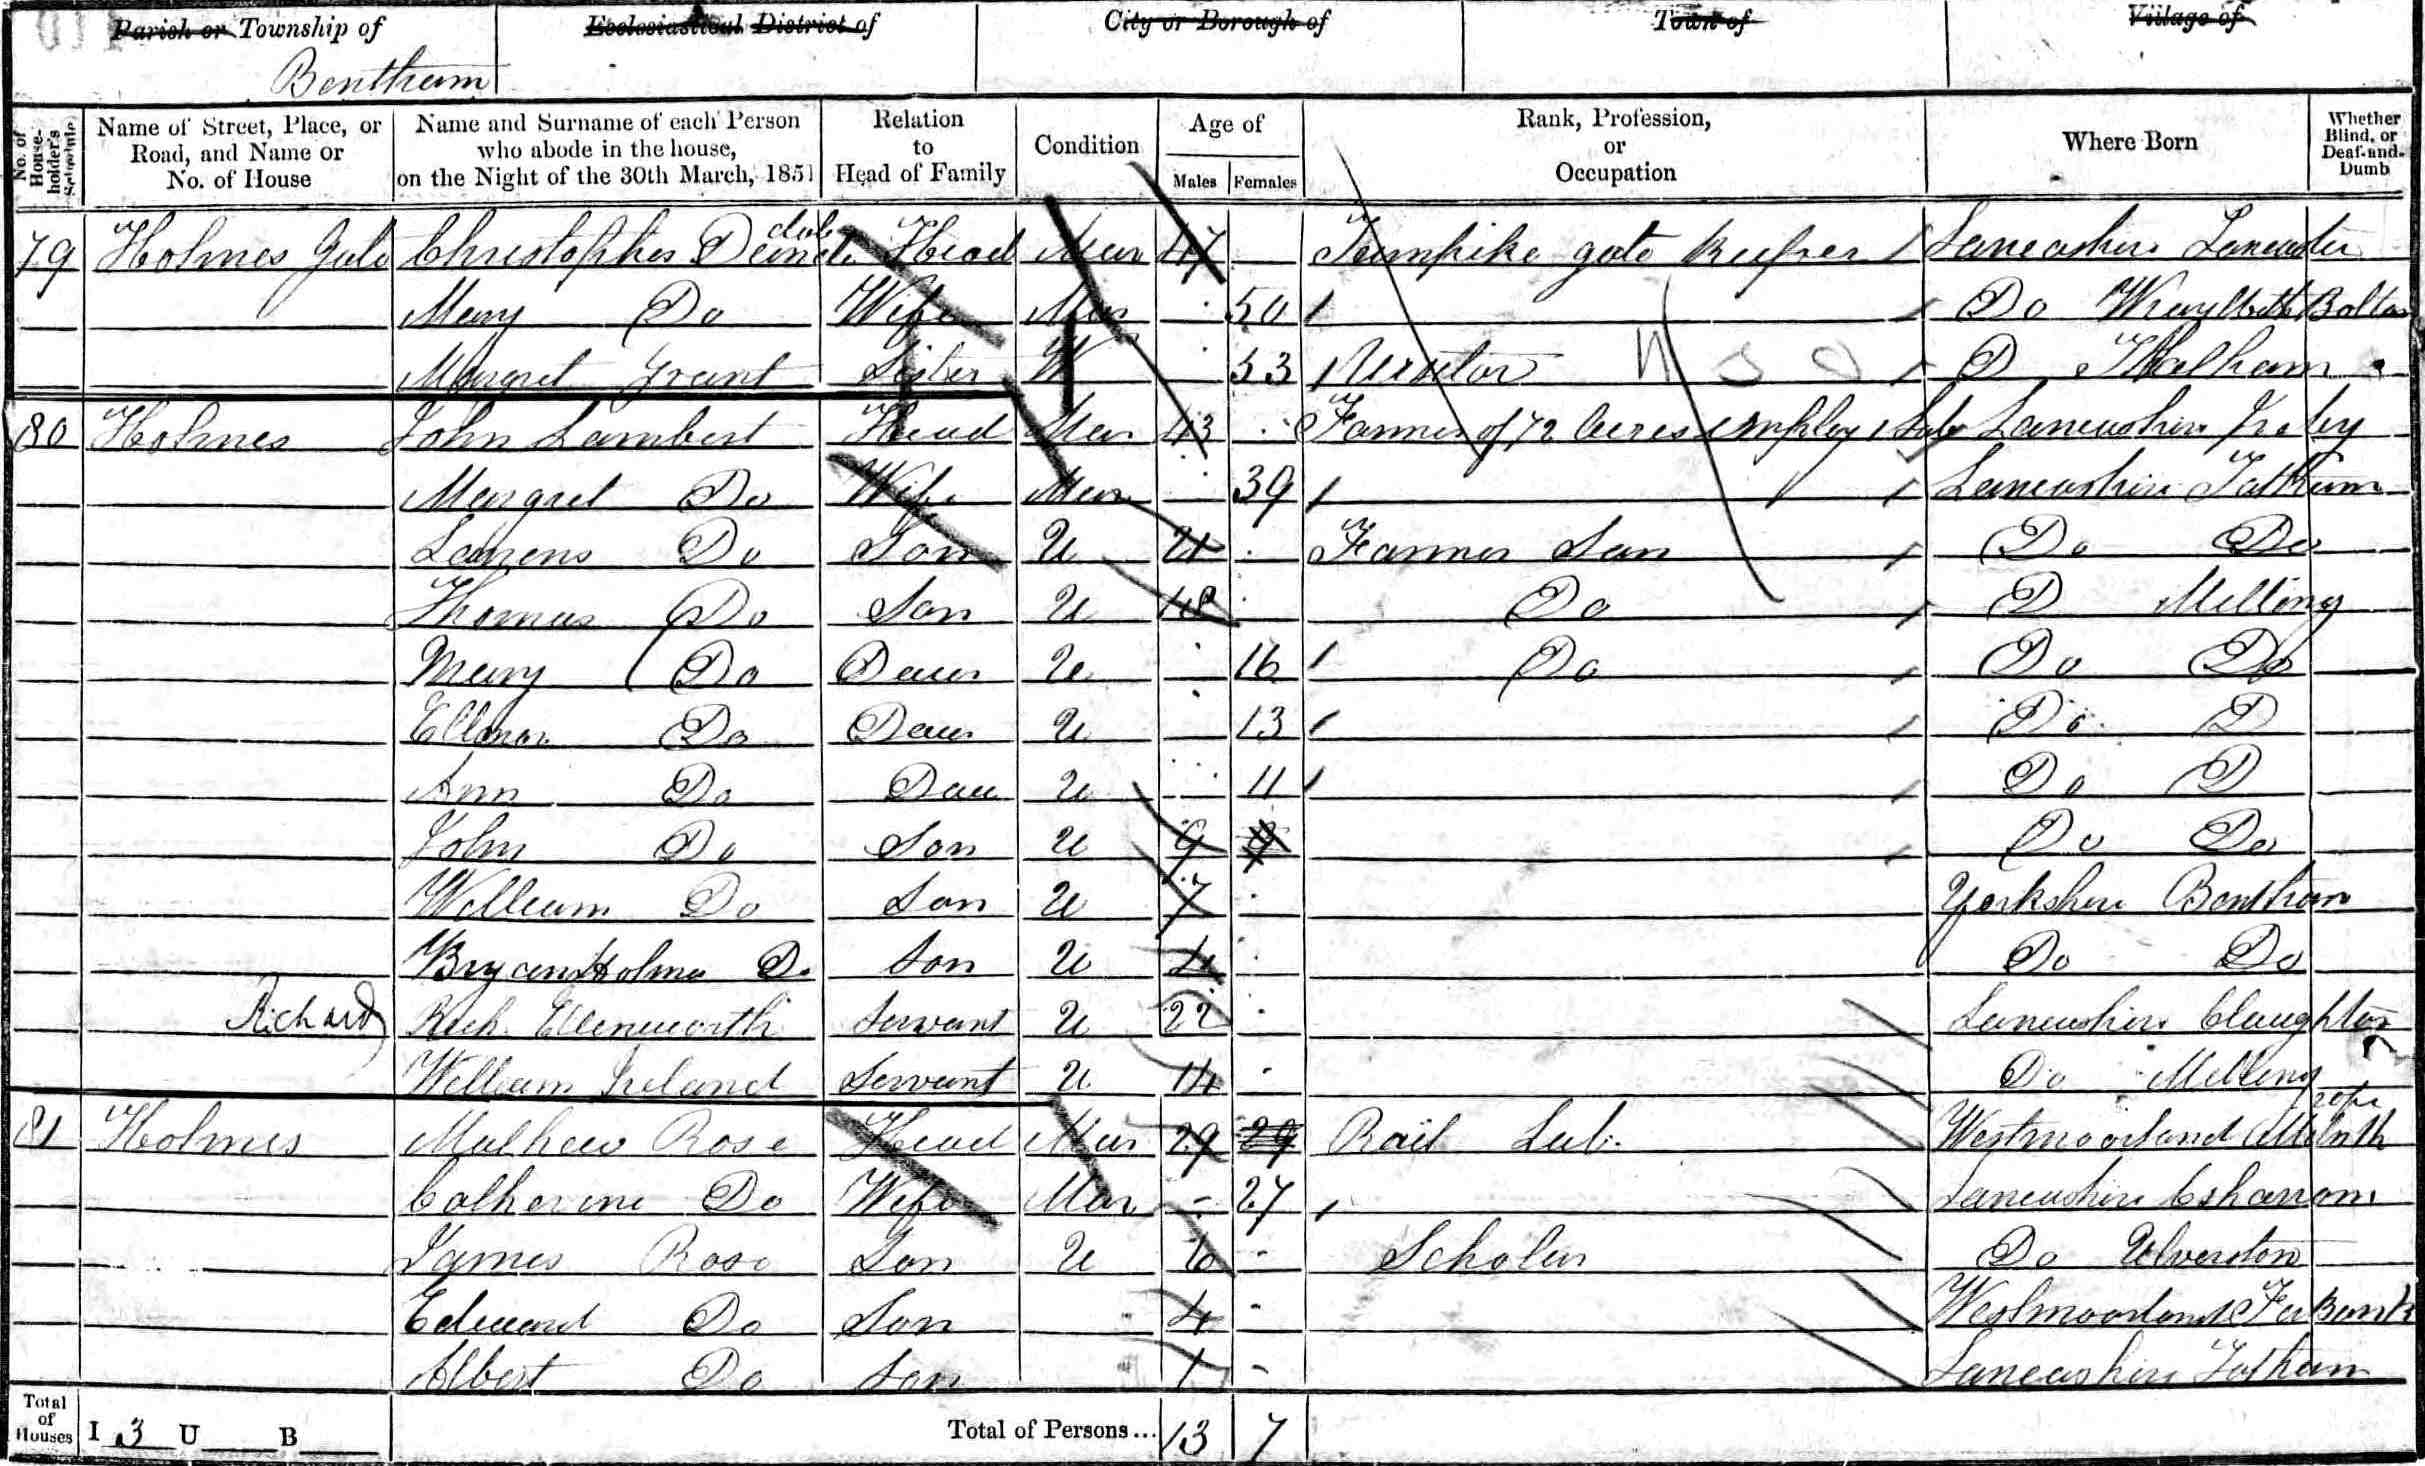 Parish or Township of Ecclesiastical District of City or Borough of Town of Village of
Bentham
No. of House-holder's Schedule
Name of Street, Place, or Road, and Name or No. of House
Name and Surname of each Person who abode in the house, on the Night of the 30th March, 1851
Relation to Head of Family
Condition
Age of
Males Females
Rank, Profession, or Occupation
Where Born
Whether Blind, or Deaf-and-Dumb
79 Holmes Gate Christopher Head Mar 47 Turnpike gate keeper Lancashire Lancaster
Mary Do Wife Mar 50 Do Bolton
Margret Grant Sister W 53 Visitor D
80 Holmes John Lambert Head Mar 43 Farmer of 72 Acres employ 1 Lab Lancashire Ireby
Margret Do Wife Mar 39 Lancashire Tatham
Do Son U 21 Farmer Son Do Do
Thomas Do Son U 18 Do D Melling
Mary Do Daur U 16 Do Do Do
Ellenor Do Daur U 13 Do D
Ann Do Dau U 11 Do D
John Do Son U 9 9 Do Do
William Do Son U 7 Yorkshire Bentham
Bryan Holme Do Son U 4 Do Do
Richard Rich. Ellenworth Servant U 22 Lancashire Claughton
William Ireland Servant U 14 Do Melling
81 Holmes Mathew Rose Head Mar 29 29 Rail Lab. Westmoorland
Catherine Do Wife Mar 27 Lancashire
James Rose Son U 6 Scholar Do Ulverston
Edward Do Son 4 Westmoorland Fa Bank
Albert Do Son 1 Lancashire Tatham
Total of Houses I 3 U B Total of Persons... 13 7